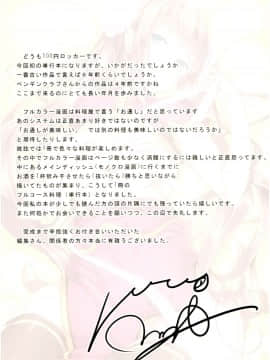 どうも100円ロッカーです。
今回初の単行本になりますが、いかがだったでしょうか
一番古い作品で言えば6年前くらいからの
ペンギンクラブさんからの作品は4年前ですかね
ここまで来るのにとても長い年月を歩みました。
フルカラー漫画は料理屋で言う「お通し」だと思っています
あのシステムは正直あまり好きではないのですが
「お通しが美味しい、では別の料理も美味しいのではないだろうか」
と期待したりします。
雑誌では「巻で色々な料理が楽しめますが、
その中でフルカラー漫画はページ数も少なく満腹にするには難しいと正直思ってます。
中にあるメインディッシュ(モノクロ漫画)に行くまでに
お酒を1杯飲みすぎさせたら(抜いたら)勝ちと思いながら
描いてたものが集まり、こうして1冊の
フルコース料理(単行本)となりました。
今回私の本が少しでも読んだ方の頭の片隅にでも残っていたら嬉しいです。
また何処かでお会いできることを願いつつ、この辺で失礼します。
完成まで辛抱強くお付き合いいただいた
編集さん、関係者の方々本当に有難うございました。